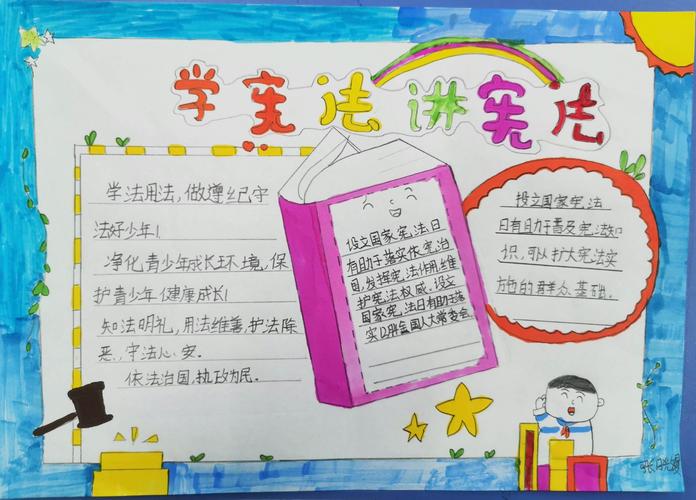 学宪法 讲宪法
学法用法,做遵纪守
法好少年!
净化青少年成长环境,保
护青少年健康成长!
知法明礼,用法维善,护法除
恶,守法心安。
依法治国,执政为民。
设立国家宪法日
有助于落实依宪治
国,发挥宪法作用,维
护宪法权威。设立
国家宪法日有助于落
实 全国人大常委会
设立国家宪法
日有助于普及宪法知
识,可以扩大宪法实
施的群众基础。